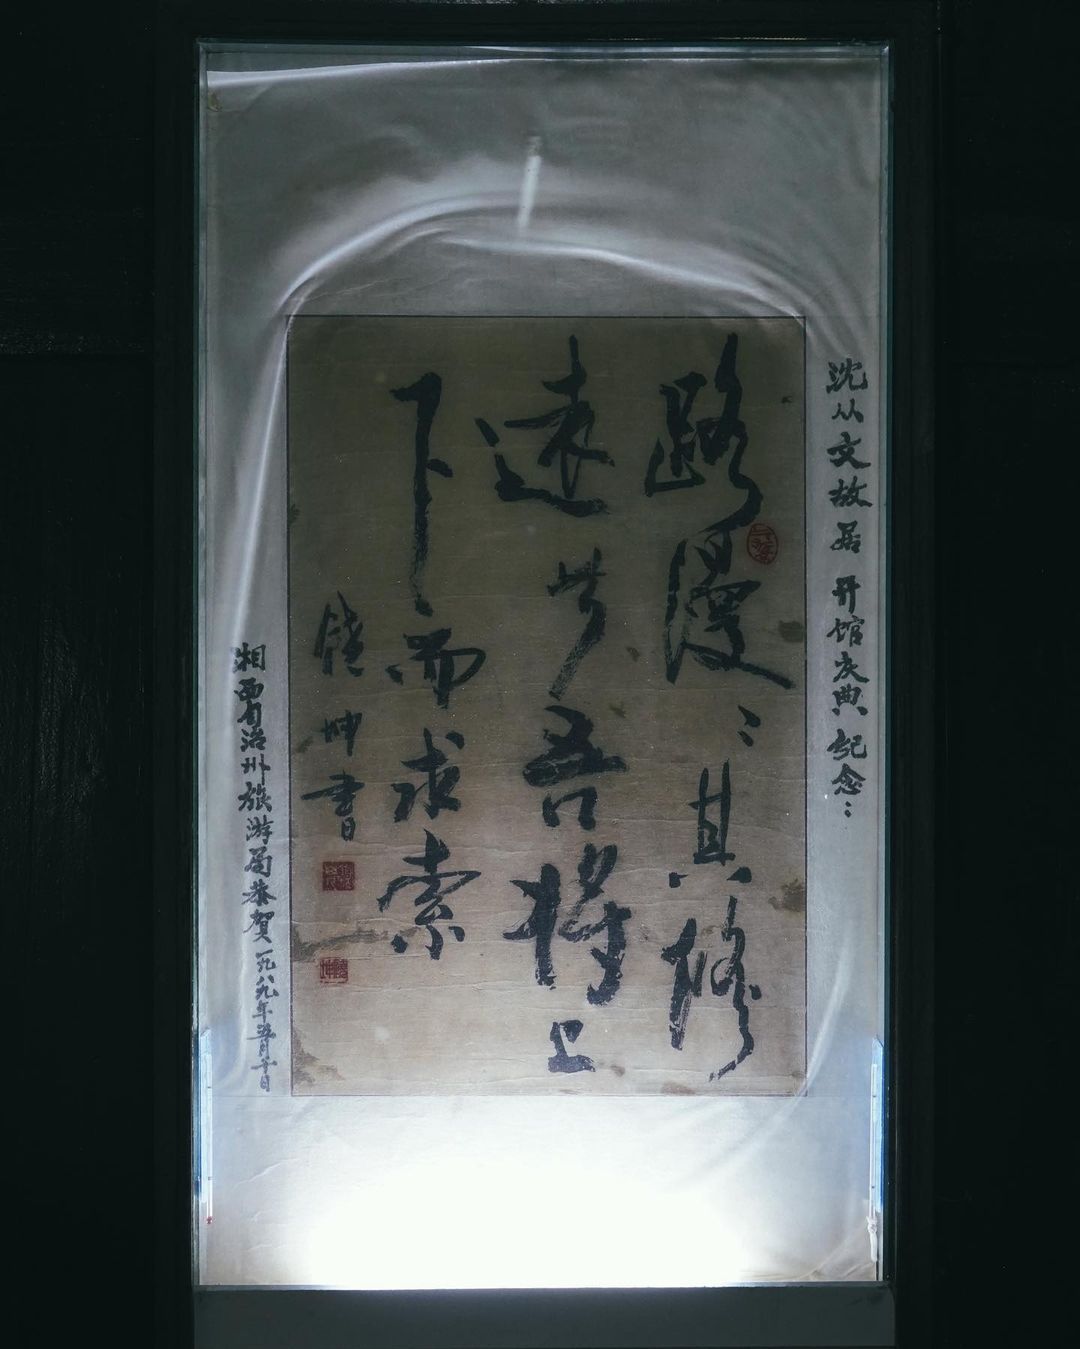 沈从文故居 开馆庆典 纪念
路漫〻其修
遠兮吾将上
下而求索
饒坤書
湘西自治州旅游局恭贺 一九八九年五月